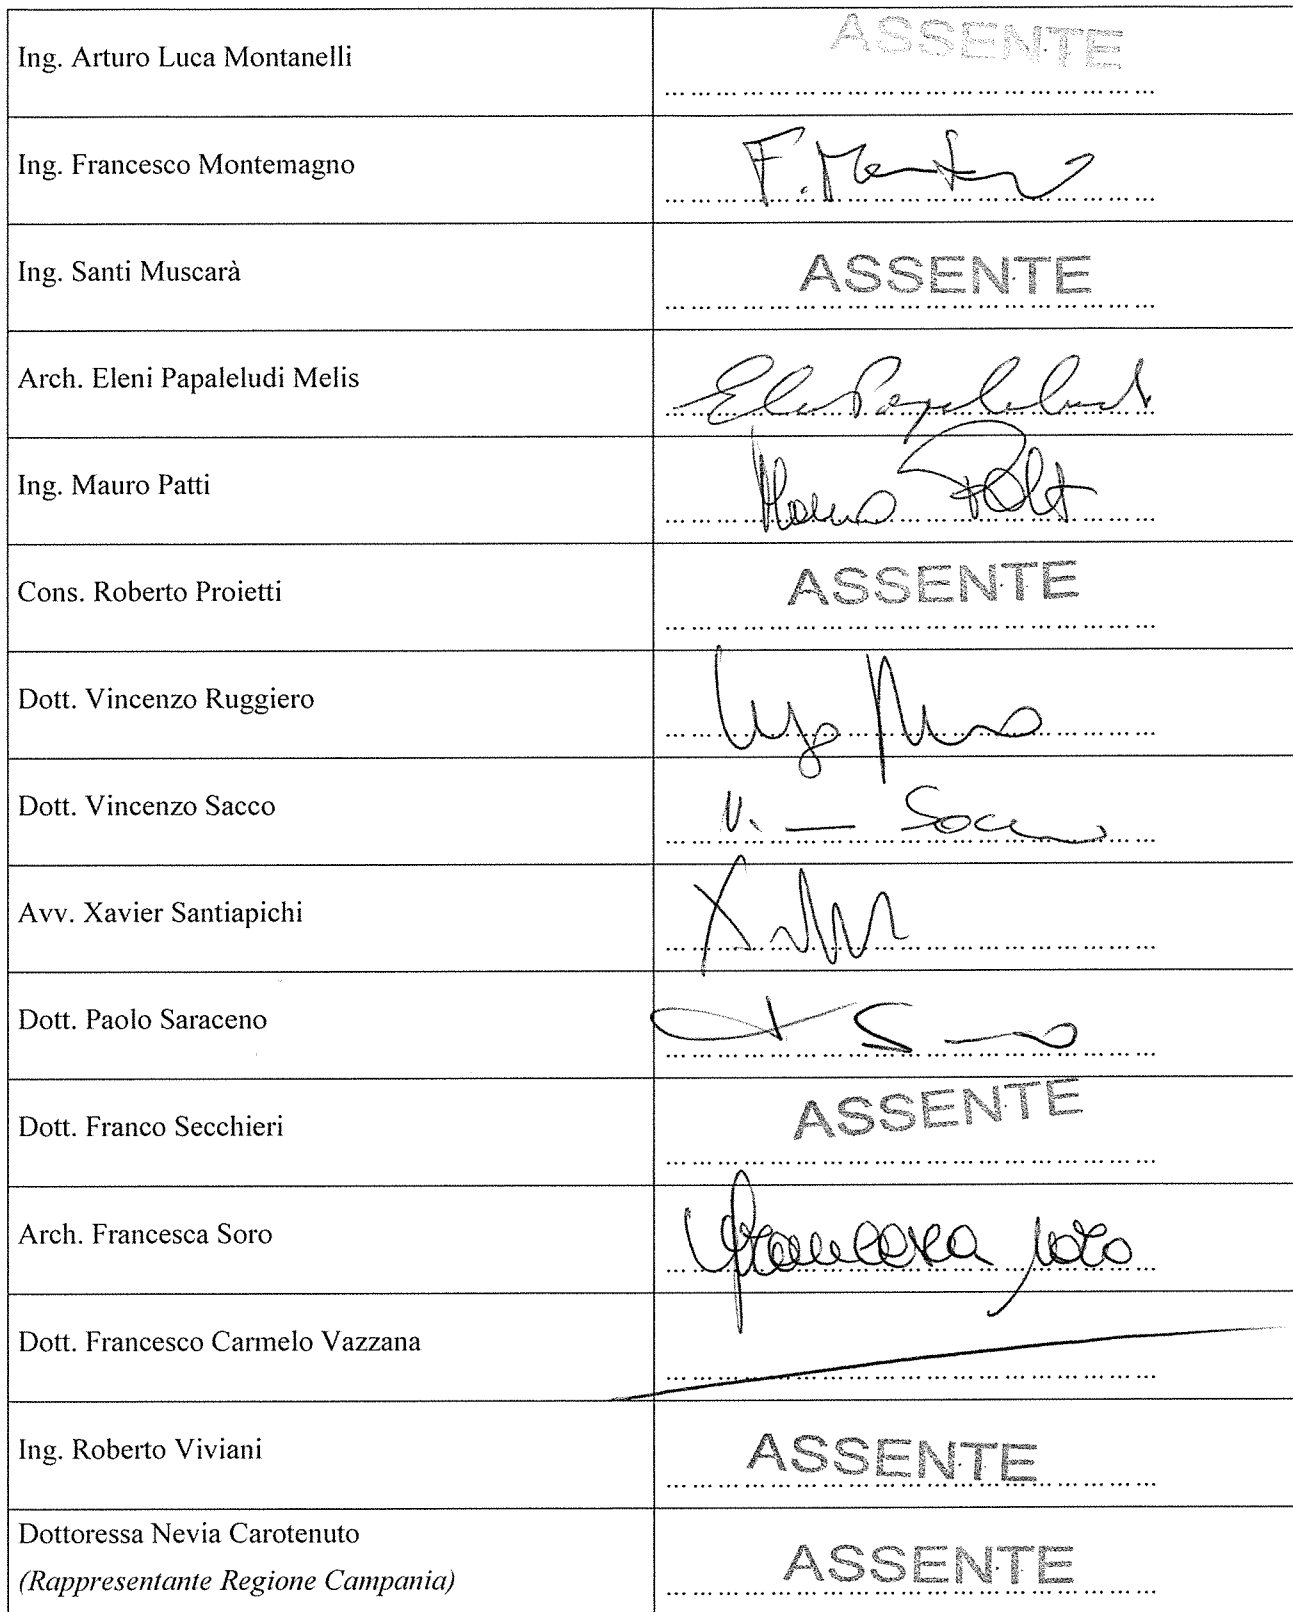 Ing. Arturo Luca Montanelli
ASSENTE
Ing. Francesco Montemagno
Ing. Santi Muscarà
ASSENTE
Arch. Eleni Papaleludi Melis
Ing. Mauro Patti
Cons. Roberto Proietti
ASSENTE
Dott. Vincenzo Ruggiero
Dott. Vincenzo Sacco
Avv. Xavier Santiapichi
Dott. Paolo Saraceno
Dott. Franco Secchieri
ASSENTE
Arch. Francesca Soro
Francesca Soro
Dott. Francesco Carmelo Vazzana
Ing. Roberto Viviani
ASSENTE
Dottoressa Nevia Carotenuto
(Rappresentante Regione Campania)
ASSENTE